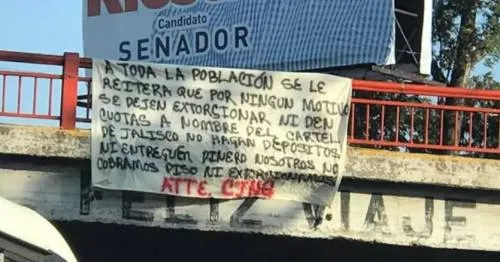 Candidato
SENADOR
A TODA LA POBLACIÓN SE LE
REITERA QUE POR NINGUN MOTIVO
SE DEJEN EXTORSIONAR NI DEN
CUOTAS A NOMBRE DEL CARTEL
DE JALISCO NO HAGAN DEPOSITOS
NI ENTREGUEN DINERO NOSOTROS NO
COBRAMOS PISO NI EXTORSIONAMOS
ATTE. CJNG
FELIZ VIAJE